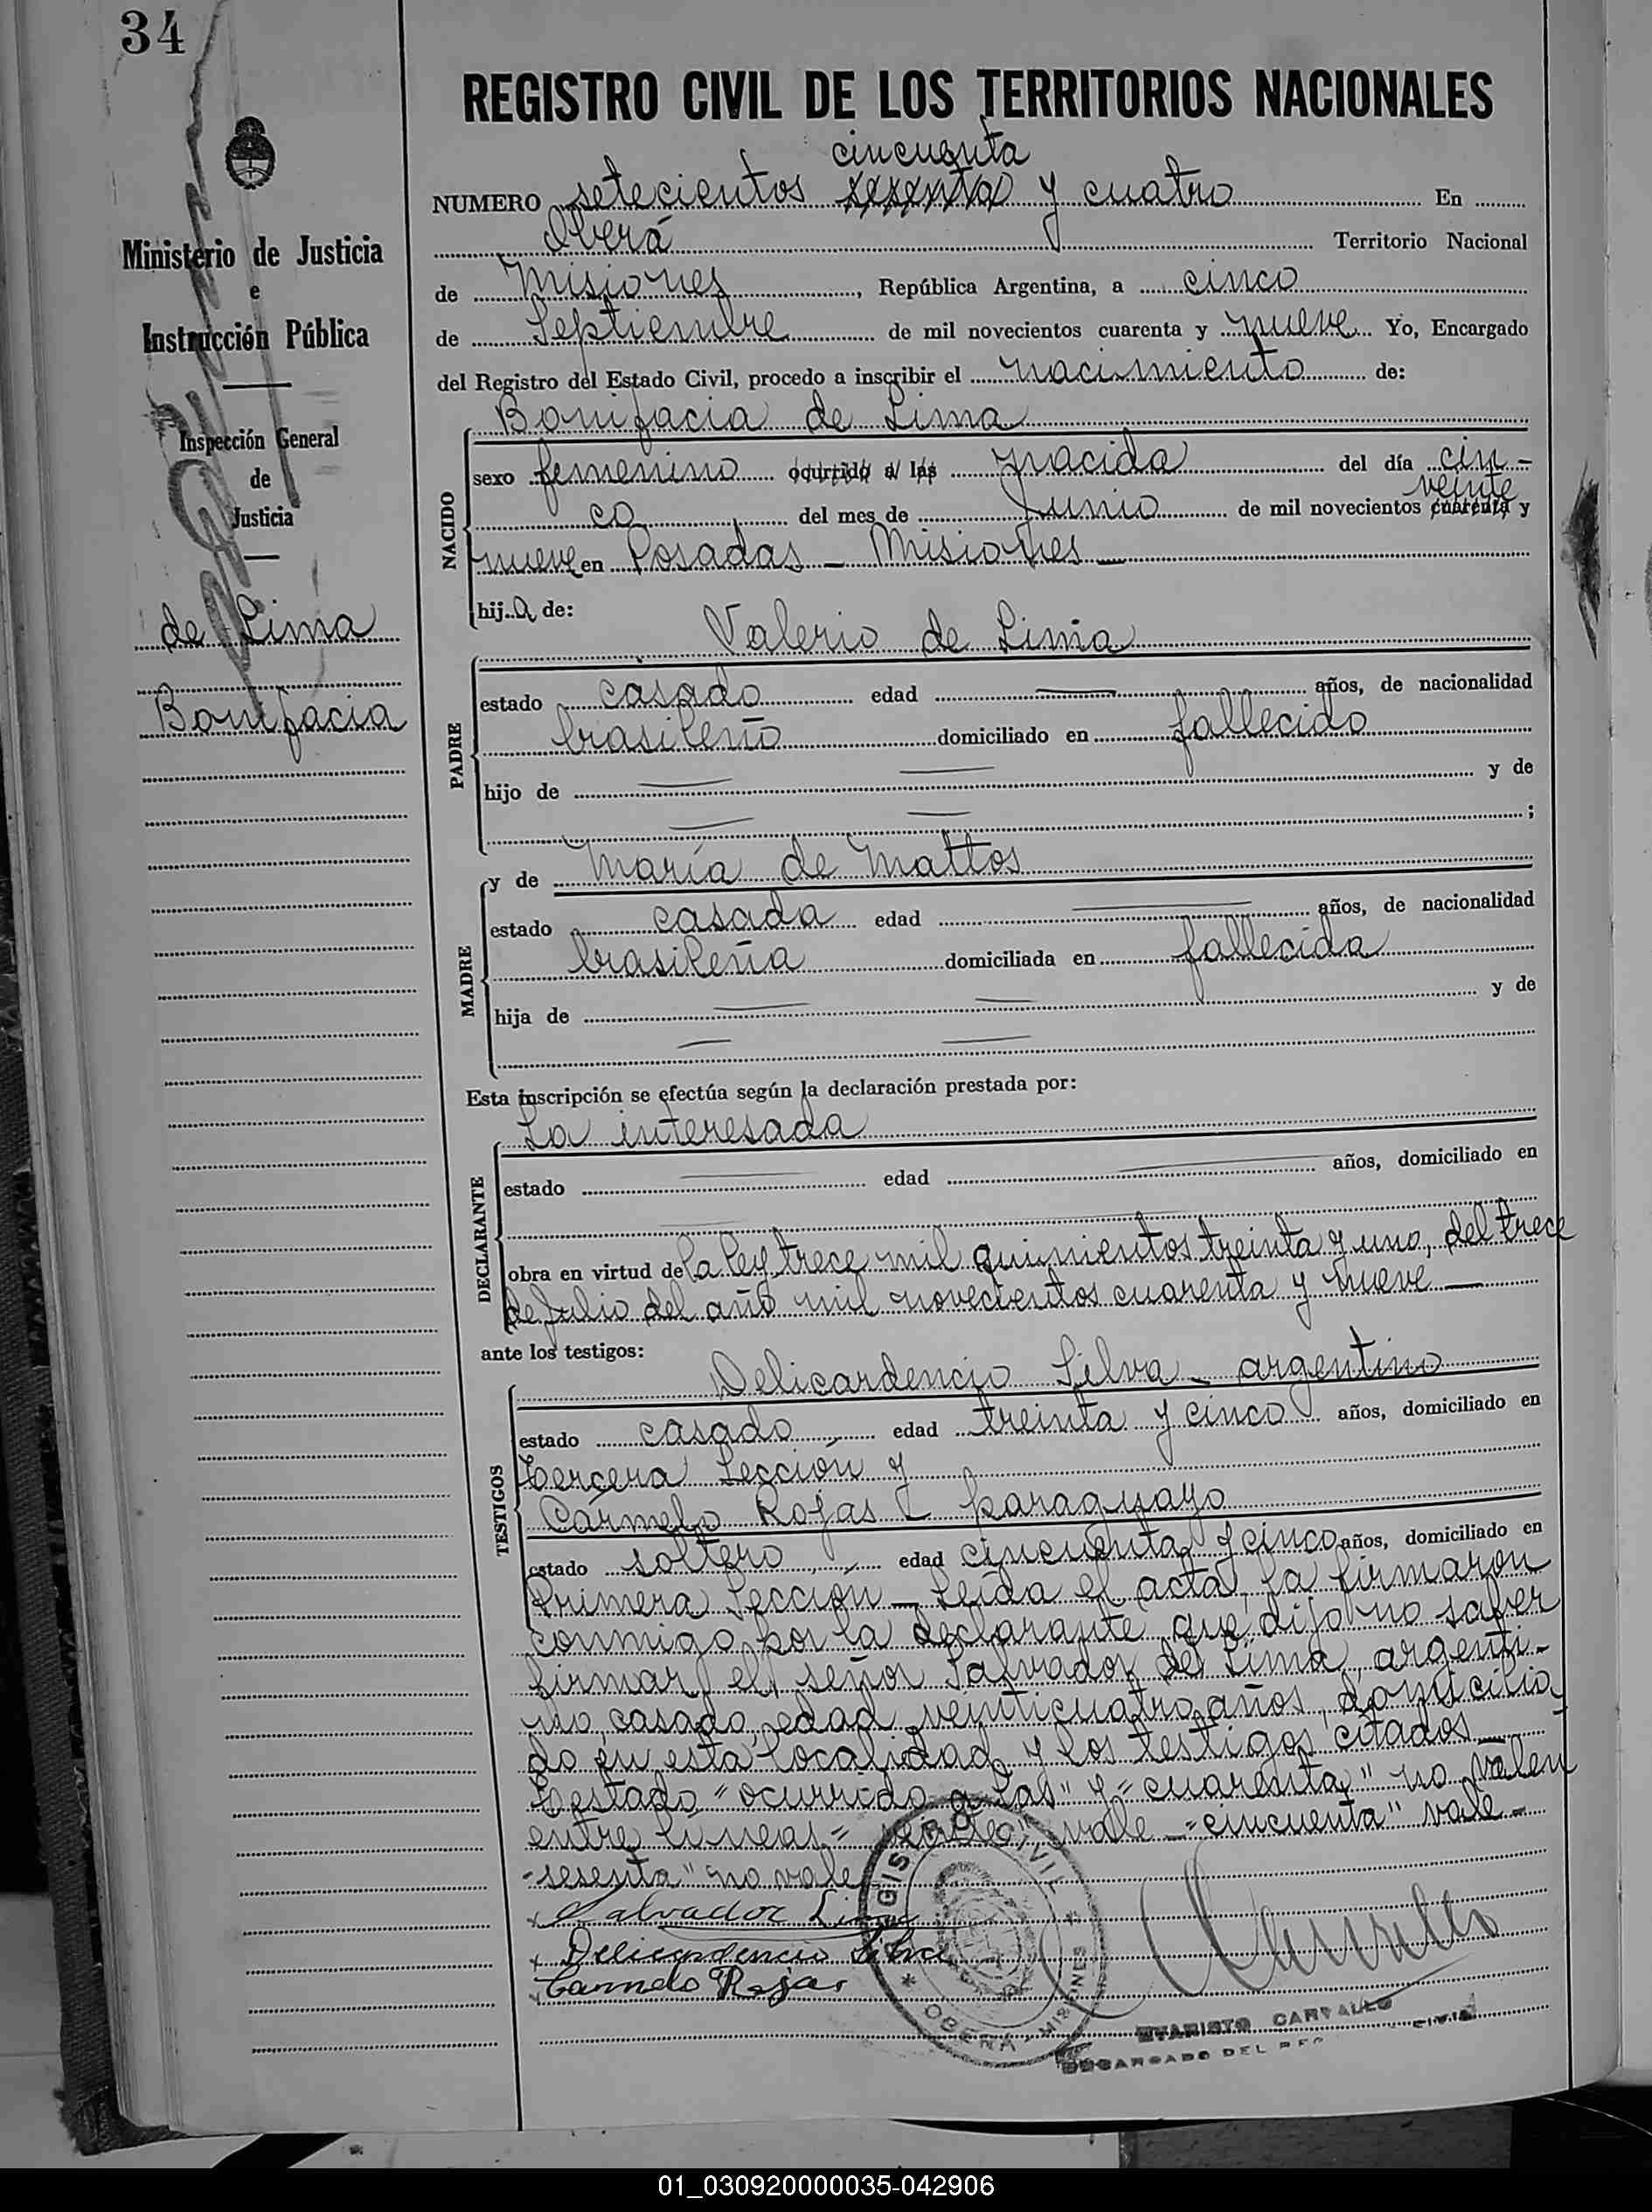 34
REGISTRO CIVIL DE LOS TERRITORIOS NACIONALES
Ministerio de Justicia
e
Instrucción Pública
Inspección General
de
Justicia
de Lima
Bonifacia
cincuenta
NUMERO setecientos sesenta y cuatro En
Oberá Territorio Nacional
de Misiones, República Argentina, a cinco
de Septiembre de mil novecientos cuarenta y nueve Yo, Encargado
del Registro del Estado Civil, procedo a inscribir el nacimiento de:
Bonifacia de Lima
NACIDO
sexo femenino ocurrido a las nacida del día cin-
veinte
co del mes de Junio de mil novecientos cuarenta y
nueve en Posadas - Misiones
hija de:
Valerio de Lima
PADRE
estado casado edad años, de nacionalidad
brasileño domiciliado en fallecido
hijo de y de
;
y de María de Mattos
MADRE
estado casada edad años, de nacionalidad
brasileña domiciliada en fallecida
hija de y de
Esta inscripción se efectúa según la declaración prestada por:
La interesada
DECLARANTE
estado edad años, domiciliado en
obra en virtud de la ley trece mil quinientos treinta y uno, del trece
de Julio del año mil novecientos cuarenta y nueve
ante los testigos:
Delicardencio Silva - argentino
TESTIGOS
estado casado edad treinta y cinco años, domiciliado en
tercera Sección y
Carmelo Rojas - paraguayo
estado soltero edad cincuenta y cinco años, domiciliado en
Primera Sección - Leída el acta, la firmaron
conmigo por la declarante que dijo no saber
firmar el señor Salvador de Lima, argenti-
no, casado, edad venticuatro años, domicilia
do en esta localidad y los testigos citados
testado "ocurrido a las" y "cuarenta" no valen
entre lineas = veinte", vale - "cincuenta" vale -
-sesenta" no vale
Salvador Lima
Delicardencio Silva
Carmelo Rojas
REGISTRO CIVIL
* OBERA - MISIONES *
EVARISTO CARVALLO
ENCARGADO DEL REG CIVIL
01_030920000035-042906